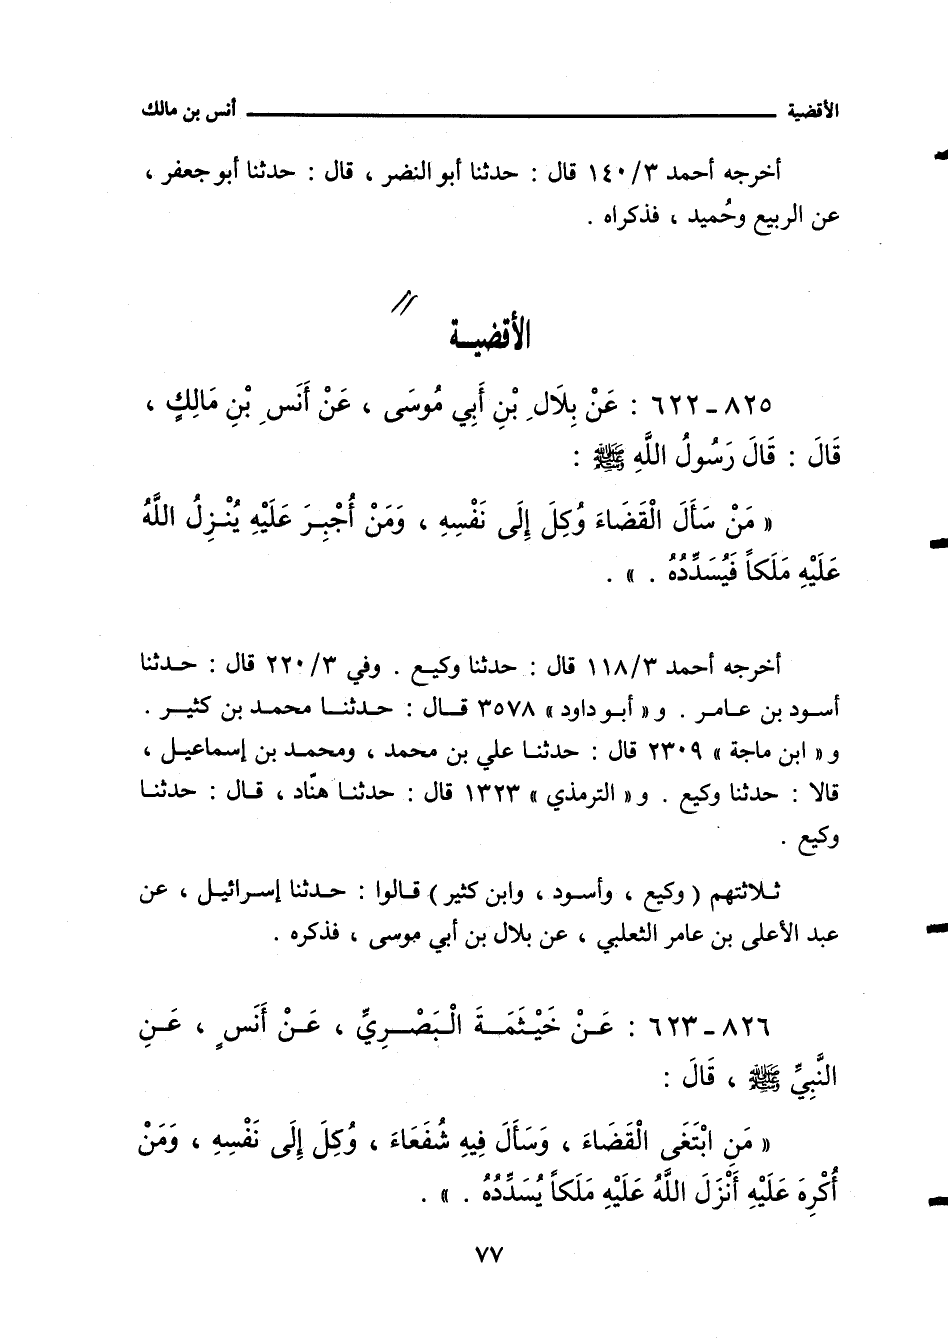 الأقضية ـــــــــــــ أنس بن مالك
أخرجه أحمد ٣/ ١٤٠ قال : حدثنا أبو النضر ، قال : حدثنا أبو جعفر ،
عن الربيع وحُميد ، فذكراه .
الأقضيـة
٨٢٥ ـ ٦٢٢ : عَنْ بِلَالِ بْنِ أَبِي مُوسَى ، عَنْ أَنَسِ بْنِ مَالِكٍ ،
قَالَ : قَالَ رَسُولُ اللَّهِ ﷺ :
« مَنْ سَأَلَ الْقَضَاءَ وُكِلَ إِلَى نَفْسِهِ ، وَمَنْ أُجْبِرَ عَلَيْهِ يُنْزِلُ اللَّهُ
عَلَيْهِ مَلَكاً فَيُسَدِّدُهُ . » .
أخرجه أحمد ٣/ ١١٨ قال : حدثنا وكيـع . وفي ٣/ ٢٢٠ قال : حدثنا
أسود بن عـامر . و « أبـو داود » ٣٥٧٨ قـال : حـدثنـا محمـد بن كثيـر .
و « ابن ماجة » ٢٣٠٩ قال : حدثنـا علي بن محمد ، ومحمـد بن إسماعيـل ،
قالا : حدثنا وكيع . و « الترمذي » ١٣٢٣ قال : حدثنـا هنَّاد ، قـال : حدثنـا
وكيع .
ثـلاثتهم ( وكيع ، وأسـود ، وابن كثير ) قـالوا : حـدثنا إسـرائيـل ، عن
عبد الأعلى بن عامر الثعلبي ، عن بلال بن أبي موسى ، فذكره .
٨٢٦ ـ ٦٢٣ : عَـنْ خَيْـثَمَـةَ الْـبَصْـرِيِّ ، عَـنْ أَنَسٍ ، عَـنِ
النَّبِيِّ ﷺ ، قَالَ :
« مَنِ ابْتَغَى الْقَضَاءَ ، وَسَأَلَ فِيهِ شُفَعَاءَ ، وُكِلَ إِلَى نَفْسِهِ ، وَمَنْ
أُكْرِهَ عَلَيْهِ أَنْزَلَ اللَّهُ عَلَيْهِ مَلَكاً يُسَدِّدُهُ . » .
٧٧